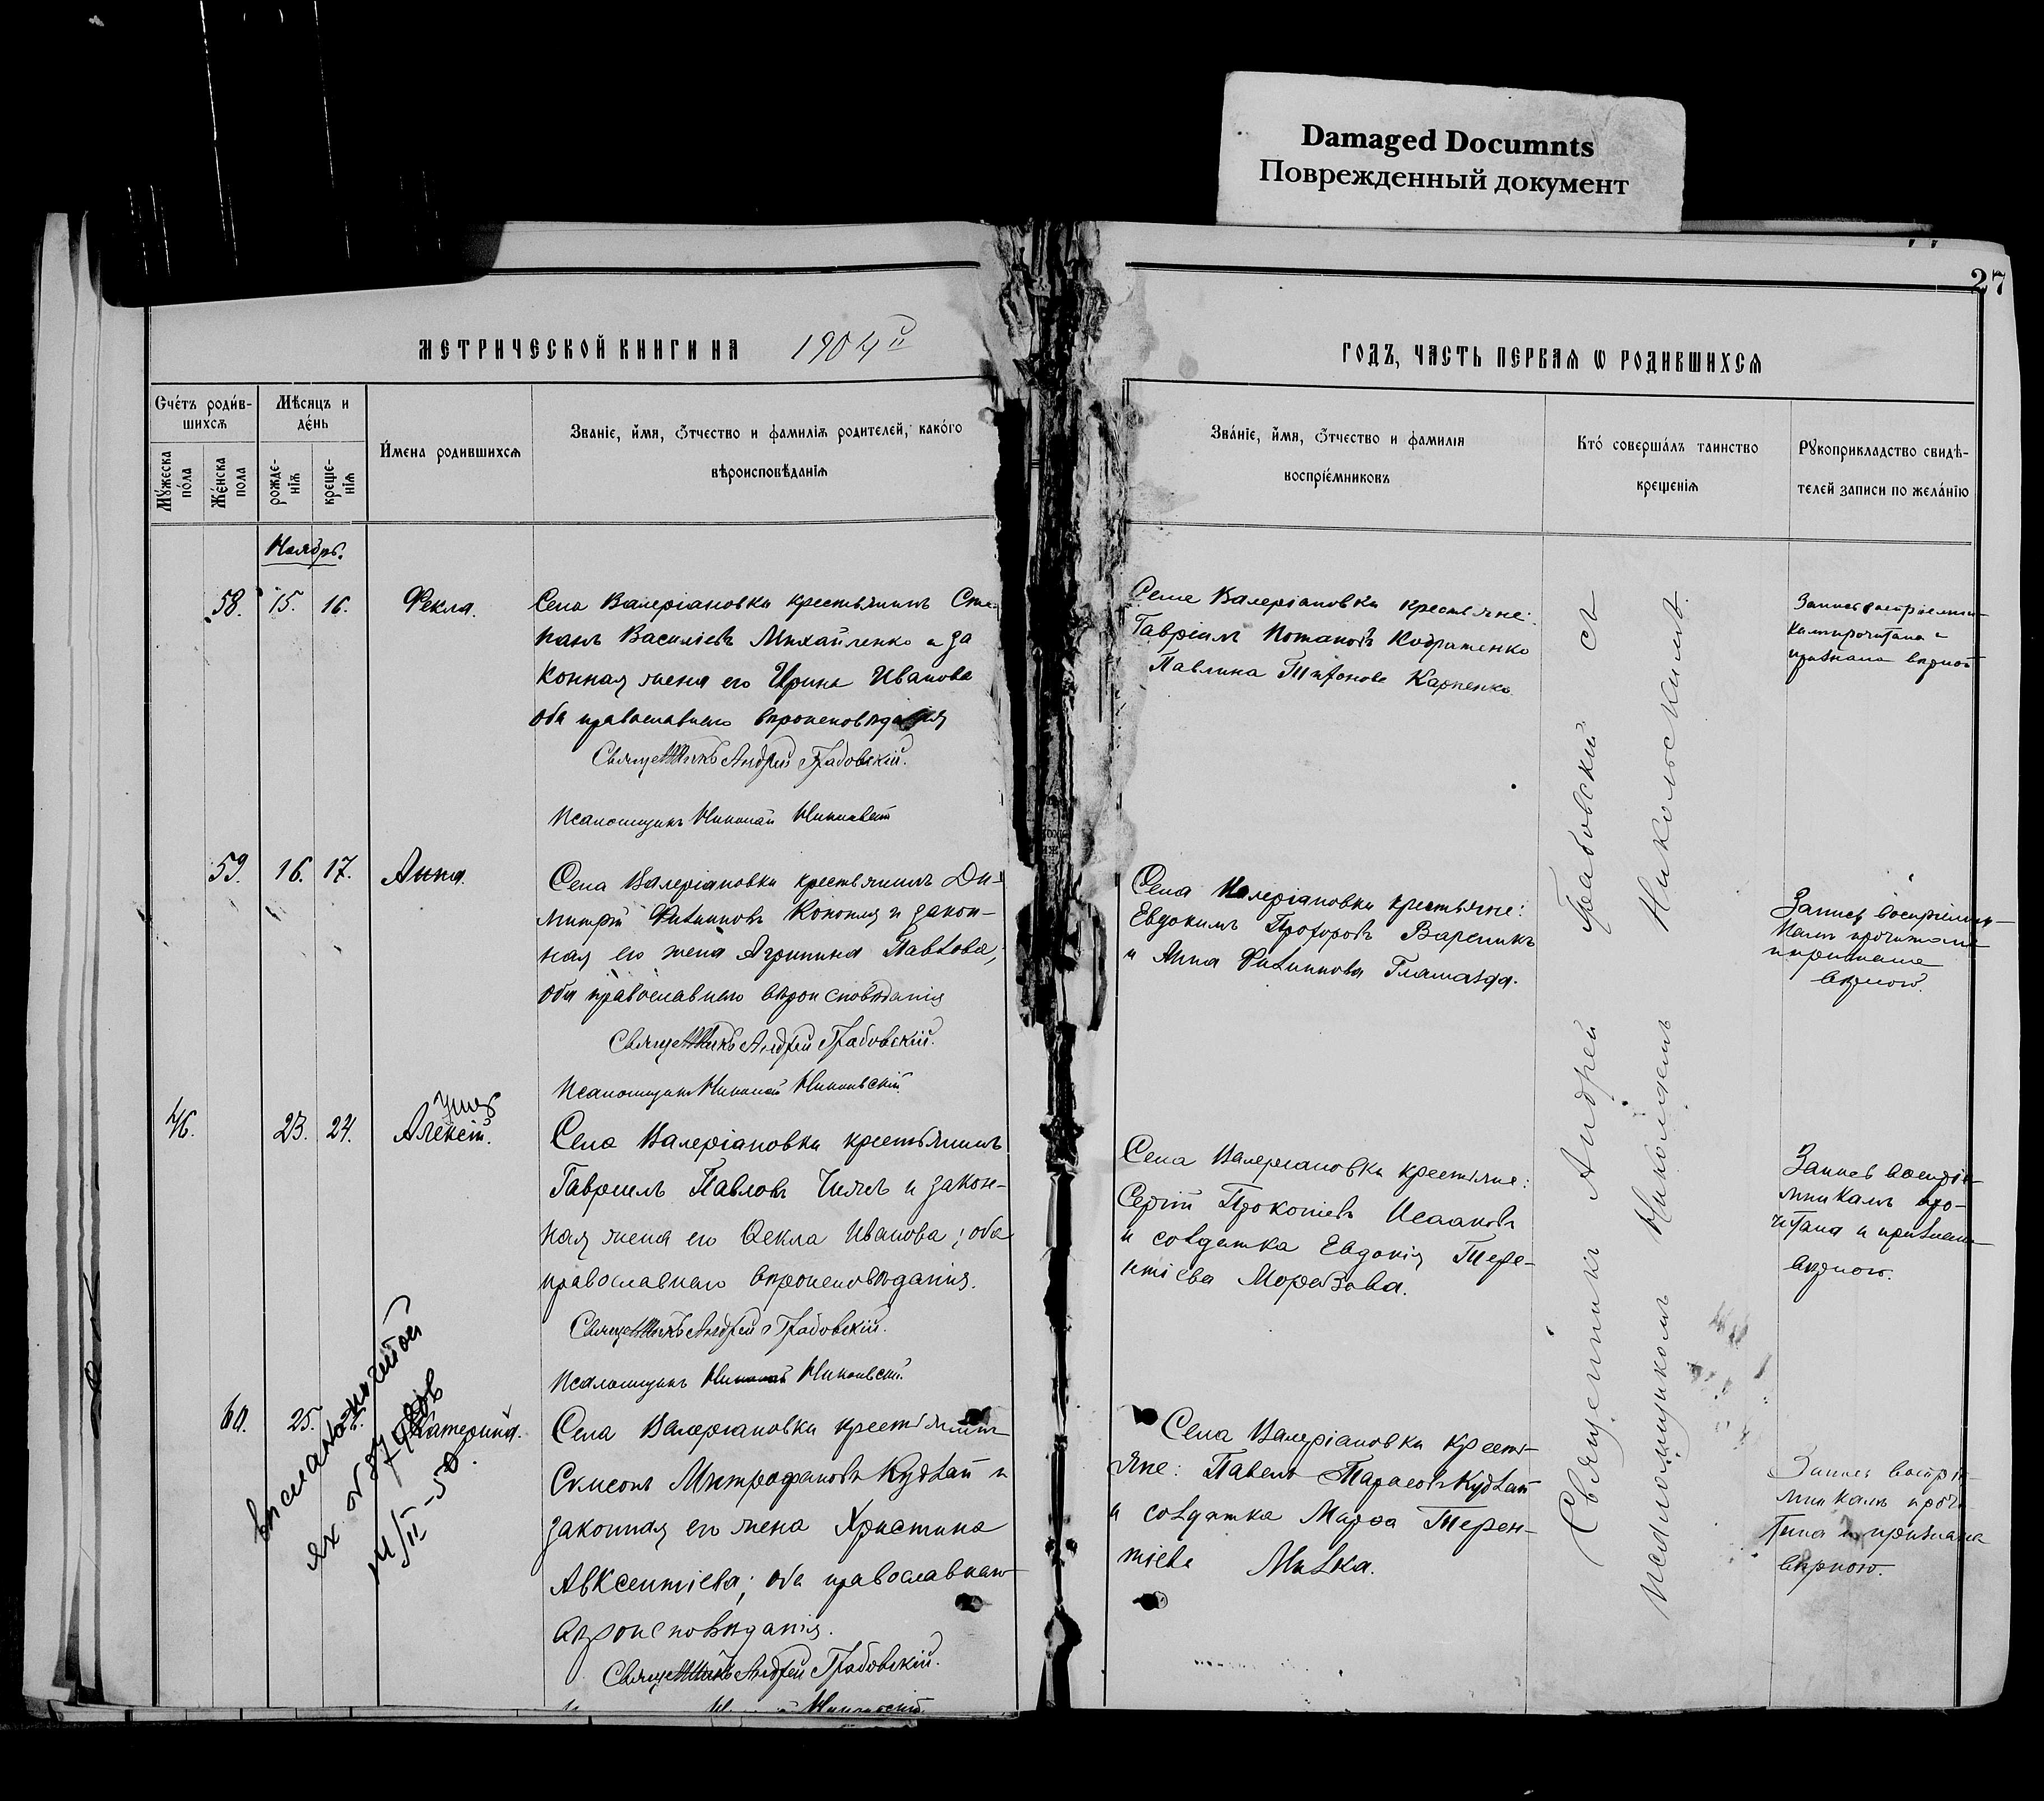 Damaged Documnts
Поврежденный документ
27
МЕТРИЧЕСКОЙ КНИГИ НА 1904й
ГОДЪ, ЧАСТЬ ПЕРВАѦ Ѡ РОДИВШИХСѦ
Счéтъ роди́в-
шихсѧ
Мѣсяцъ и
дéнь
Мꙋ́жеска
по́ла
Жéнска
пола
рожде-
нїѧ
креще-
нїѧ
И́мена родившихсѧ
Званїе, и́мя, Ѻтчество и фамилїѧ родителей, како́го
вѣроисповѣданїѧ
Зва́нїе, и́мя, Ѻтчество и фамилїя
воспрїéмниковъ
Кто́ соверша́лъ таинство
крещенїѧ
Рꙋкоприкладство свидѣ-
телей записи по жела́нїю
Ноябрь.
58. 15. 16. Фекла.
Села Валеріановки крестьянинъ Сте-
панъ Василіевъ Михайленко и за
конная жена его Ирина Иванова
оба православнаго вѣроисповѣданія
Священникъ Андрей Грабовскій.
Псаломщикъ Николай
Села Валеріановки крестьяне:
Гавріилъ Потаповъ
Павлина Карпенко
Запись воспріемни-
камъ прочитана и
признана вѣрной
59. 16. 17. Анна.
Села Валеріановки крестьянинъ Ди-
митрій Филипповъ Конопля и закон-
ная его жена Агрипина Павлова,
оба православнаго вѣроисповѣданія
Священникъ Андрей Грабовскій.
Псаломщикъ Николай Никольскій
Села Валеріановки крестьяне:
Евдокимъ Прохоровъ Вареникъ
и Анна Филиппова Гламазда.
Запись воспріемни-
камъ прочитана
и признана
вѣрною.
46. 23. 24. Алексій.
Села Валеріановки крестьянинъ
Гавріилъ Павловъ и закон-
ная жена его Ѳекла Иванова; оба
православнаго вѣроисповѣданія.
Священникъ Андрей Грабовскій.
Псаломщикъ Николай Никольскій
Села Валеріановки крестьяне:
Сергій Прокопіевъ Исааковъ
и солдатка Евдокія Тере-
нтіева Морозова.
Запись воспріе-
мникамъ про-
читана и признана
вѣрною.
60. 25. Катерина.
Села Валеріановки крестьянинъ
Симеонъ Митрофановъ Кудлай и
законная его жена Христина
Авксентіева; оба православнаго
вѣроисповѣданія.
Священникъ Андрей Грабовскій.
Никольскій
Села Валеріановки кресть-
яне: Павелъ Тарасовъ Кудлай
и солдатка Марѳа Терен-
тіева
Запись воспріе-
мникамъ прочи-
тана и признана
вѣрною.
Священникъ Андрей Грабовскій съ
псаломщикомъ Николаемъ Никольскимъ.